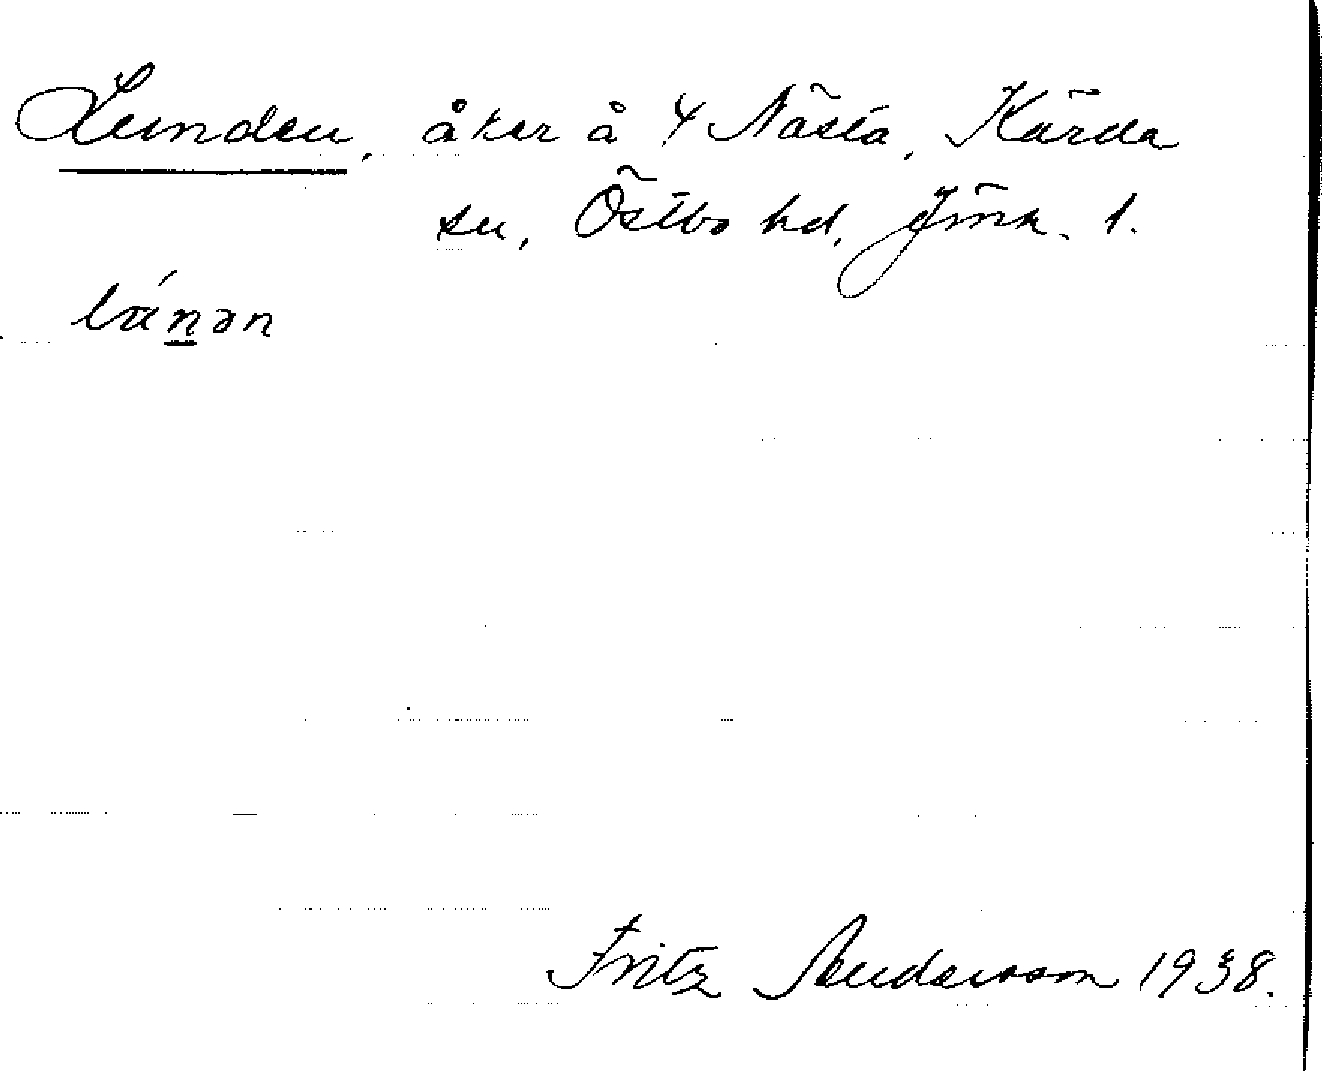 Lunden, åker å 4 Nästa, Kärda
sn, Östbo hd, Jönk. l.
Fritz Andersson 1938.